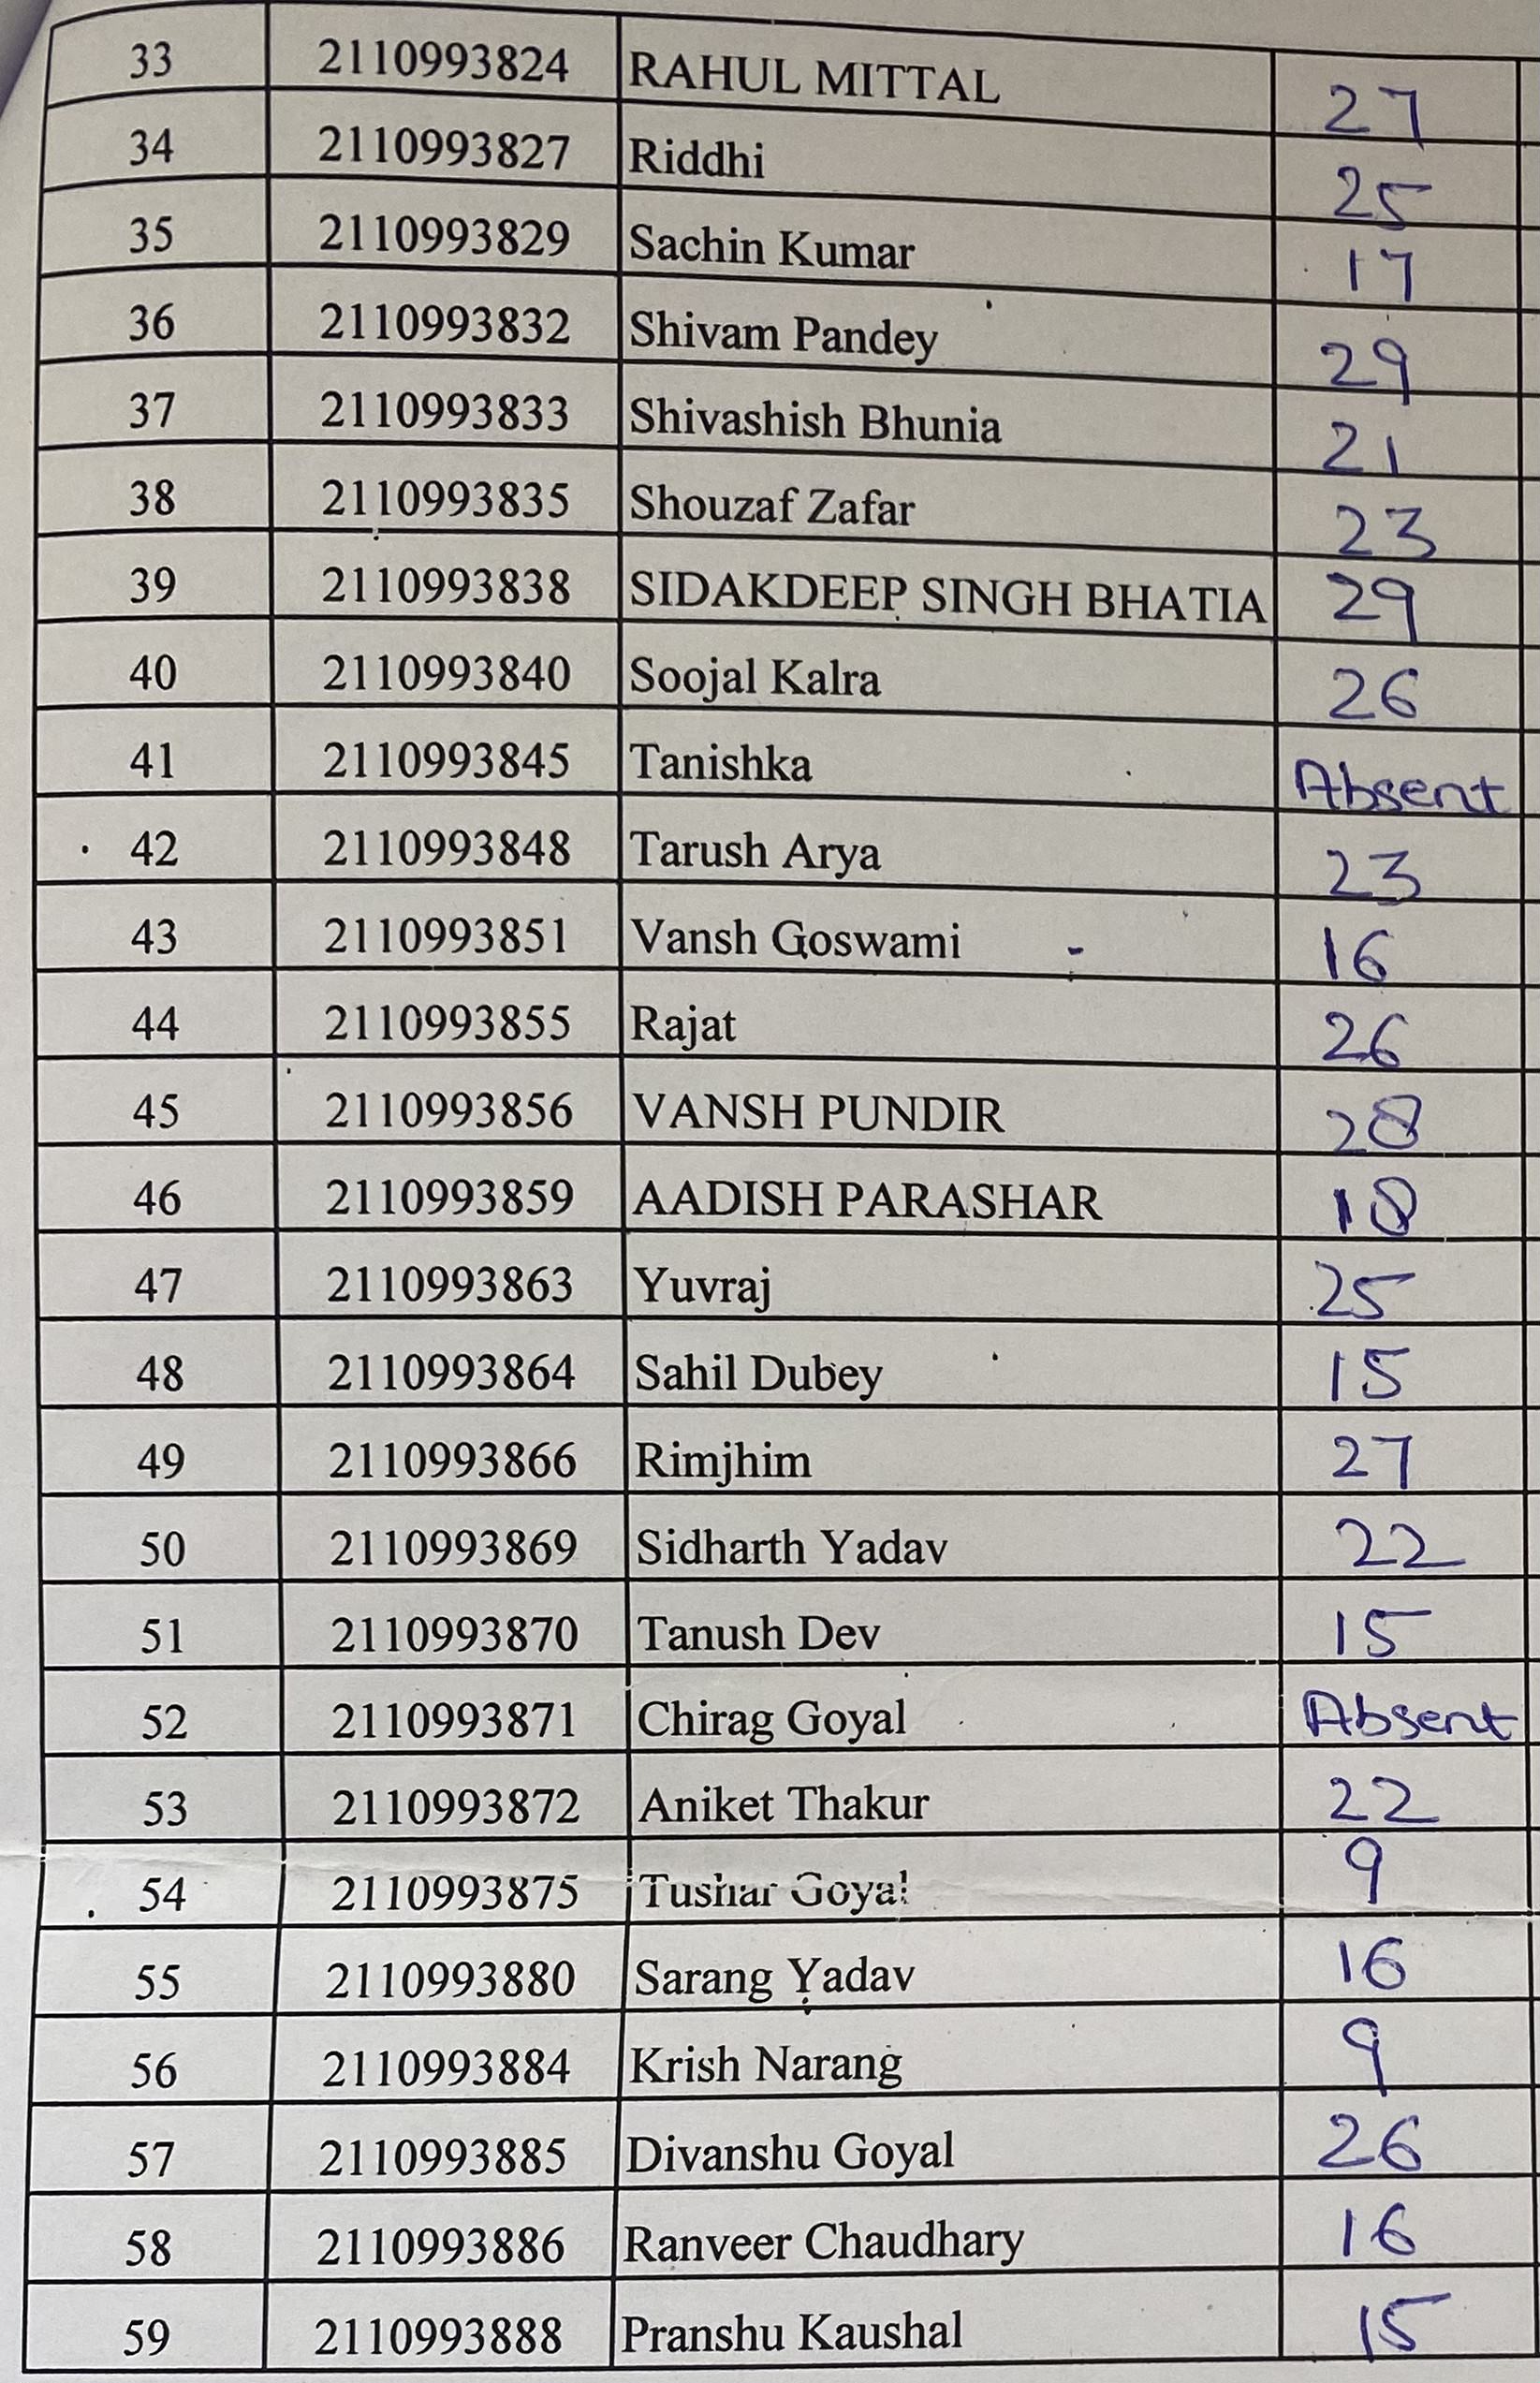 33 2110993824 RAHUL MITTAL 27
34 2110993827 Riddhi 25
35 2110993829 Sachin Kumar 17
36 2110993832 Shivam Pandey 29
37 2110993833 Shivashish Bhunia 21
38 2110993835 Shouzaf Zafar 23
39 2110993838 SIDAKDEEP SINGH BHATIA 29
40 2110993840 Soojal Kalra 26
41 2110993845 Tanishka Absent
42 2110993848 Tarush Arya 23
43 2110993851 Vansh Goswami 16
44 2110993855 Rajat 26
45 2110993856 VANSH PUNDIR 28
46 2110993859 AADISH PARASHAR 18
47 2110993863 Yuvraj 25
48 2110993864 Sahil Dubey 15
49 2110993866 Rimjhim 27
50 2110993869 Sidharth Yadav 22
51 2110993870 Tanush Dev 15
52 2110993871 Chirag Goyal Absent
53 2110993872 Aniket Thakur 22
54 2110993875 Tushar Goyal 9
55 2110993880 Sarang Yadav 16
56 2110993884 Krish Narang 9
57 2110993885 Divanshu Goyal 26
58 2110993886 Ranveer Chaudhary 16
59 2110993888 Pranshu Kaushal 15